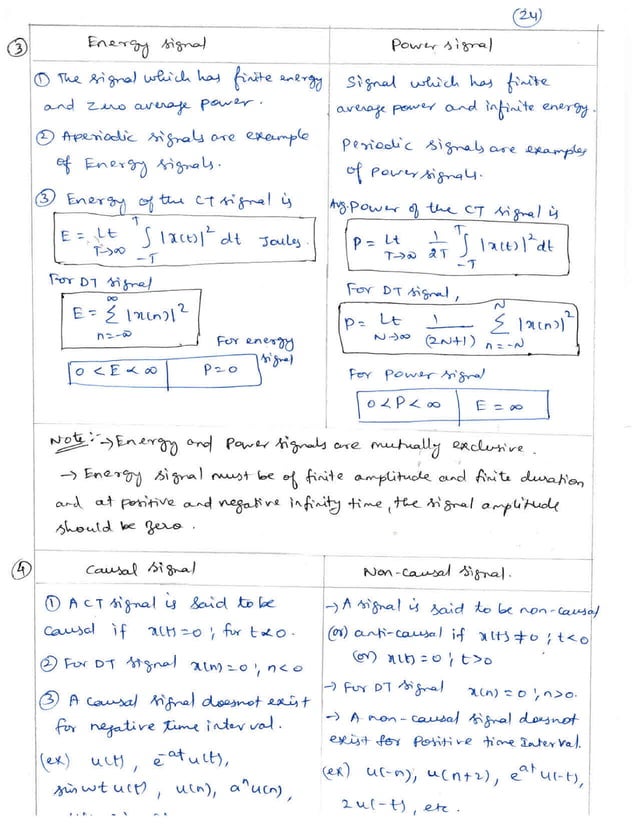 (24)
③ Energy signal
① The signal which has finite energy
and zero average power.
② Aperiodic signals are example
of Energy signals.
③ Energy of the CT signal is
E = Lt T→∞ ∫ -T T |x(t)|² dt Joules.
For DT signal
E = Σ n=-∞ ∞ |x(n)|²
For energy
signal
0 < E < ∞ | P = 0
Power signal
Signal which has finite
average power and infinite energy.
Periodic signals are examples
of power signals.
Avg. Power of the CT signal is
P = Lt T→∞ 1/2T ∫ -T T |x(t)|² dt
For DT signal,
P = Lt N→∞ 1/(2N+1) Σ n=-N N |x(n)|²
For Power signal
0 < P < ∞ | E = ∞
Note:- → Energy and Power signals are mutually exclusive.
→ Energy signal must be of finite amplitude and finite duration
and at positive and negative infinity time, the signal amplitude
should be zero.
④ Causal signal
① A CT signal is said to be
causal if x(t)=0; for t<0.
② For DT signal x(n)=0; n<0
③ A causal signal doesnot exist
for negative time interval.
(ex) u(t), e^-at u(t),
sin wt u(t), u(n), aⁿu(n),
Non-causal signal.
→ A signal is said to be non-causal
(or) anti-causal if x(t) ≠ 0; t<0
(or) x(t)=0; t>0
→ For DT signal x(n)=0; n>0.
→ A non-causal signal doesnot
exist for positive time Interval.
(ex) u(-n), u(n+2), e^at u(-t),
2u(-t), etc.